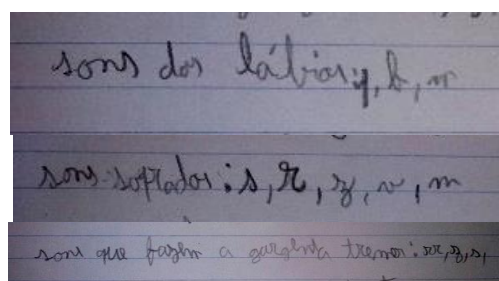 sons dos lábios: p, b, m
sons soprados: s, r, z, v, m
sons que fazem a garganta tremer: rr, z, s,